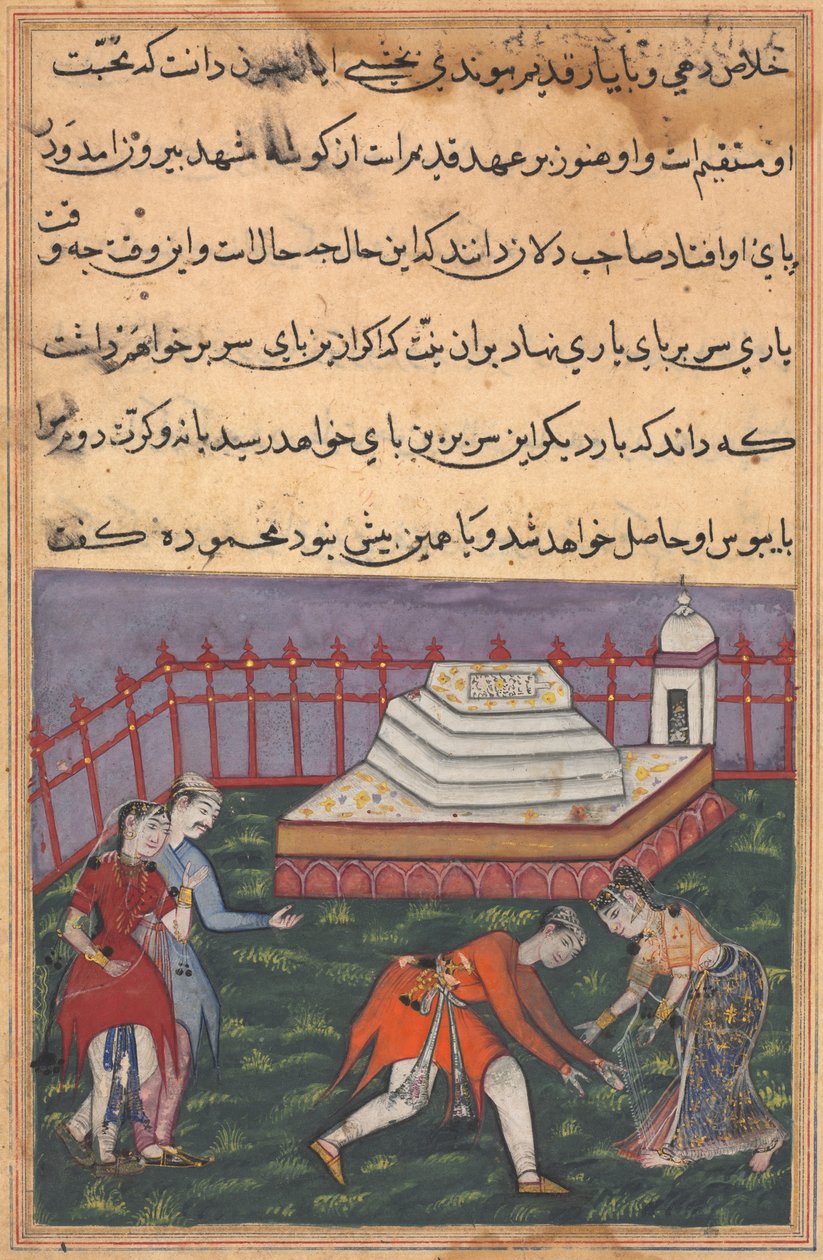 خلاص دهي و با يار قديم پيوندي بخشي اياز چون دانست كه محبّت
او مستقيم است و او هنوز بر عهد قديم است از كوشه مشهد بيرون امد و در
پاي او افتاد صاحب دلان دانند كه اين حال جه حال است و اين وقت جه وقت
ياري سر بر پاي ياري نهاد بران نيّت كه اكر ازين پاي سر بر خواهم داشت
كه داند كه بار ديكر اين سر برين پاي خواهد رسيد يا نه و كرّت دوم مرا
پايبوس او حاصل خواهد شد و يا همين بيش نبود محموده كفت